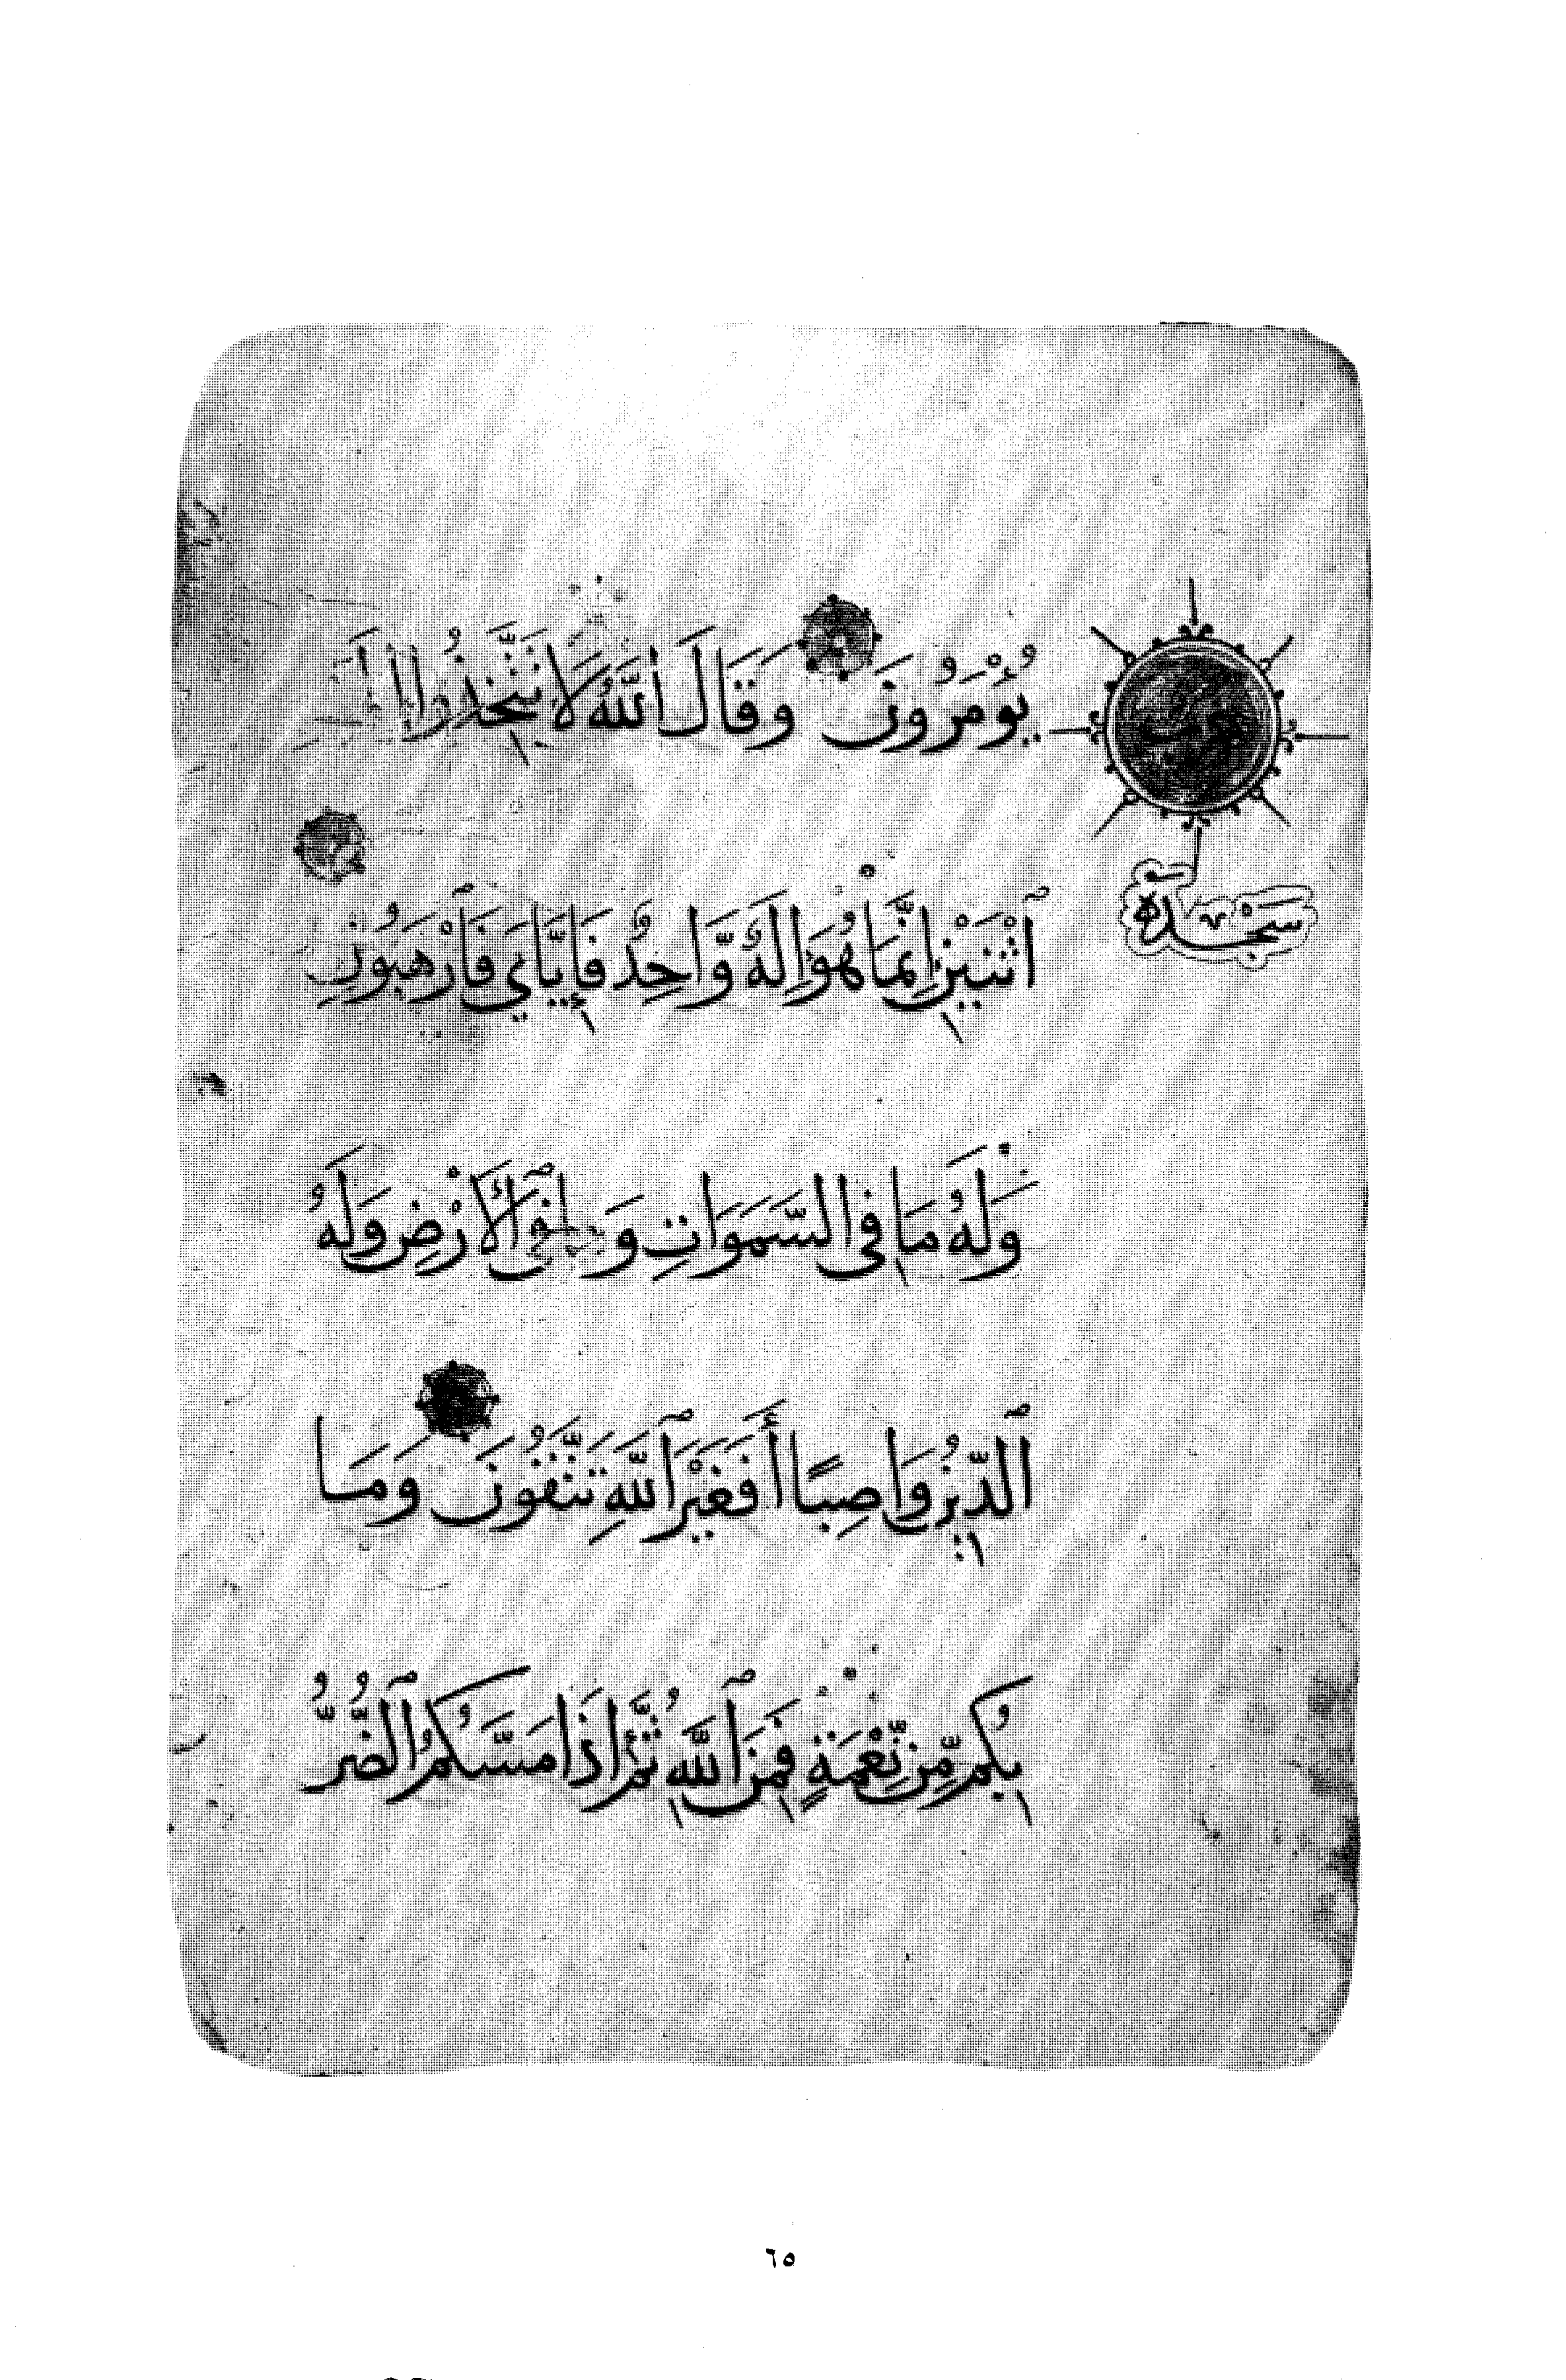 يُؤْمَرُونَ وَقَالَ ٱللَّهُ لَا تَتَّخِذُوا إِلَـ
سَجْدَة
ٱثْنَيْنِ إِنَّمَا هُوَ إِلَهٌ وَّاحِدٌ فَإِيَّايَ فَٱرْهَبُونِ
وَلَهُ مَا فِى السَّمَوَاتِ وَ ٱلْأَرْضِ وَلَهُ
ٱلدِّينُ وَاصِبًا أَفَغَيْرَ ٱللَّهِ تَتَّقُونَ وَمَا
بِكُم مِّن نِّعْمَةٍ فَمِنَ ٱللَّهِ ثُمَّ إِذَا مَسَّكُمُ ٱلضُّرُّ
٦٥